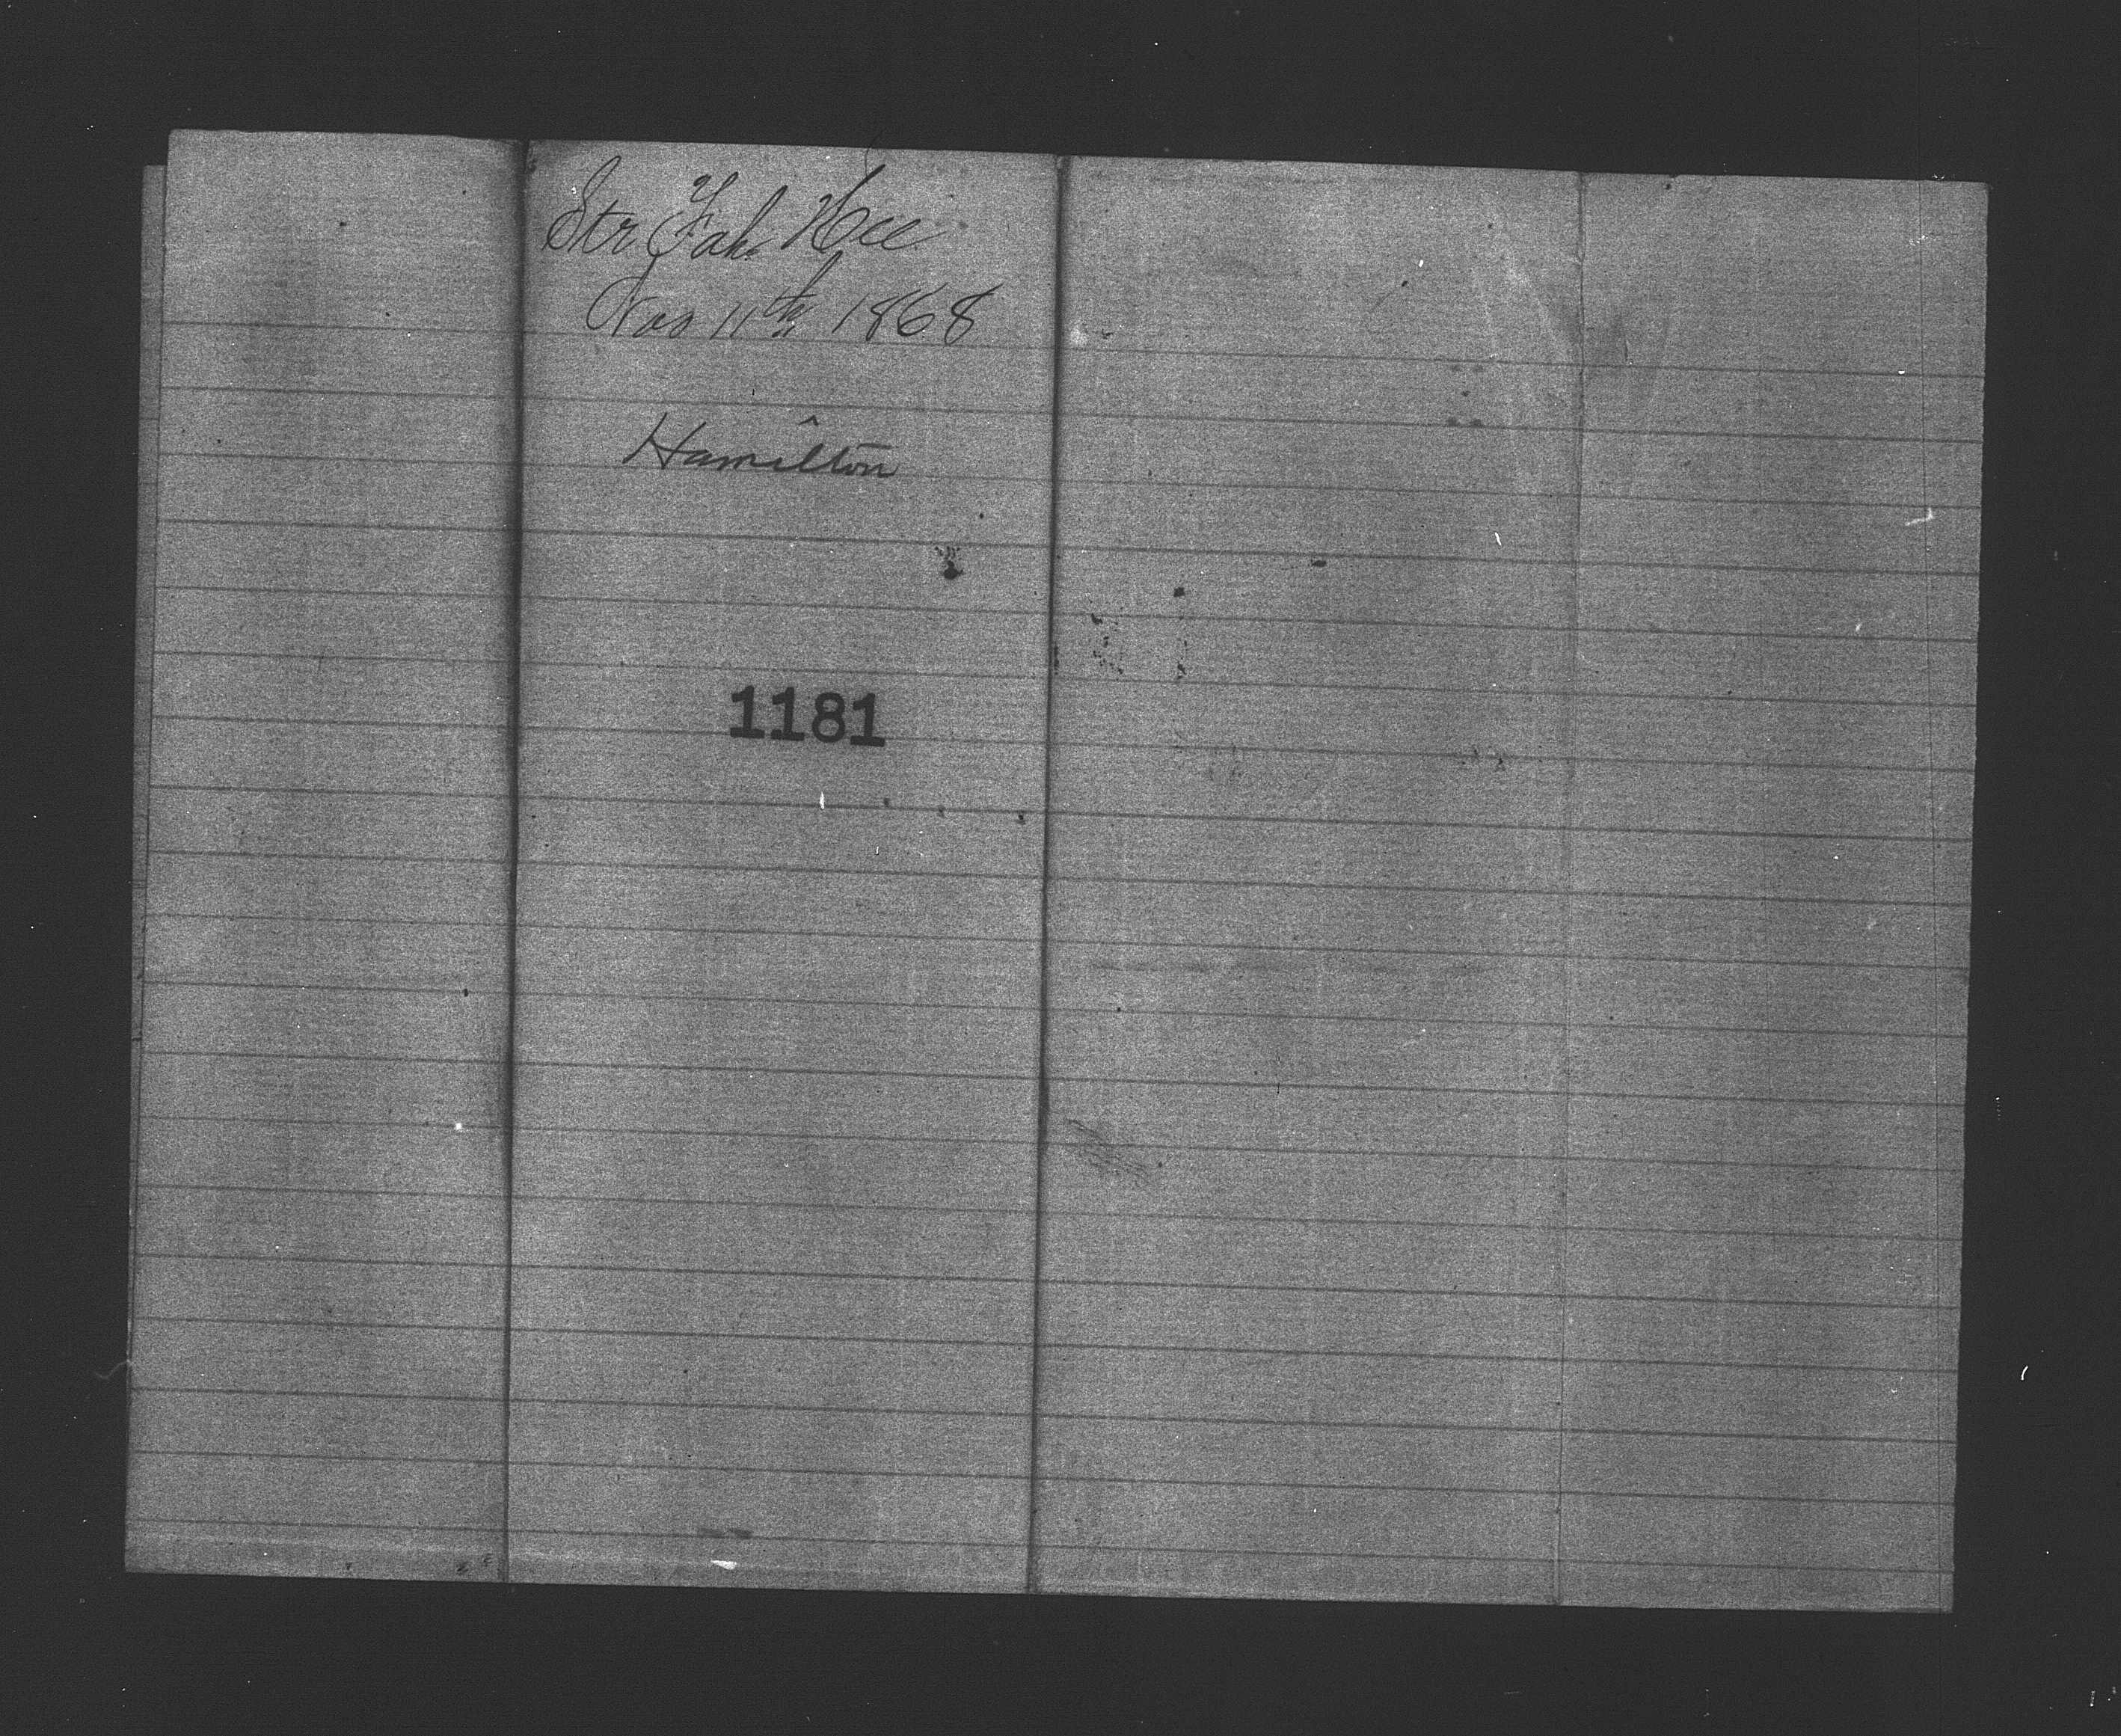 Str Fah Kee
Nov 11th 1868
Hamilton
1181